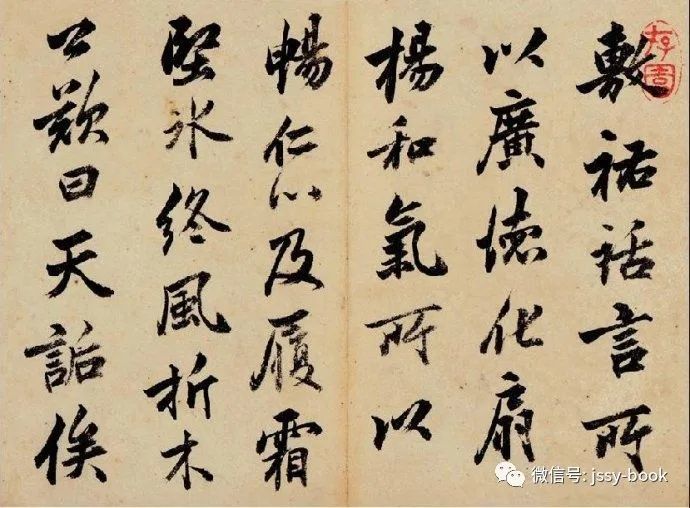 敷祐話言所
以廣德化扇
楊和氣所以
暢仁心及履霜
堅冰終風折木
公歎曰天詬俟
微信号: jssy-book